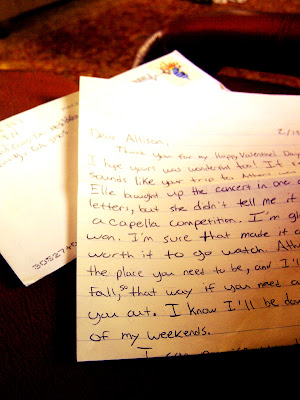 Dear Allison,
2/1
Thank you for my Happy Valentine's Day
I hope yours was wonderful too! It
sounds like your trip to Athens was
Elle brought up the concert in one of
letters, but she didn't tell me it
a capella competition. I'm gl
won. I'm sure that made it
worth it to go watch. Ath
the place you need to be, and I'll
fall, so that way if you need a
you out. I know I'll be dow
of my weekends.
I can
30527